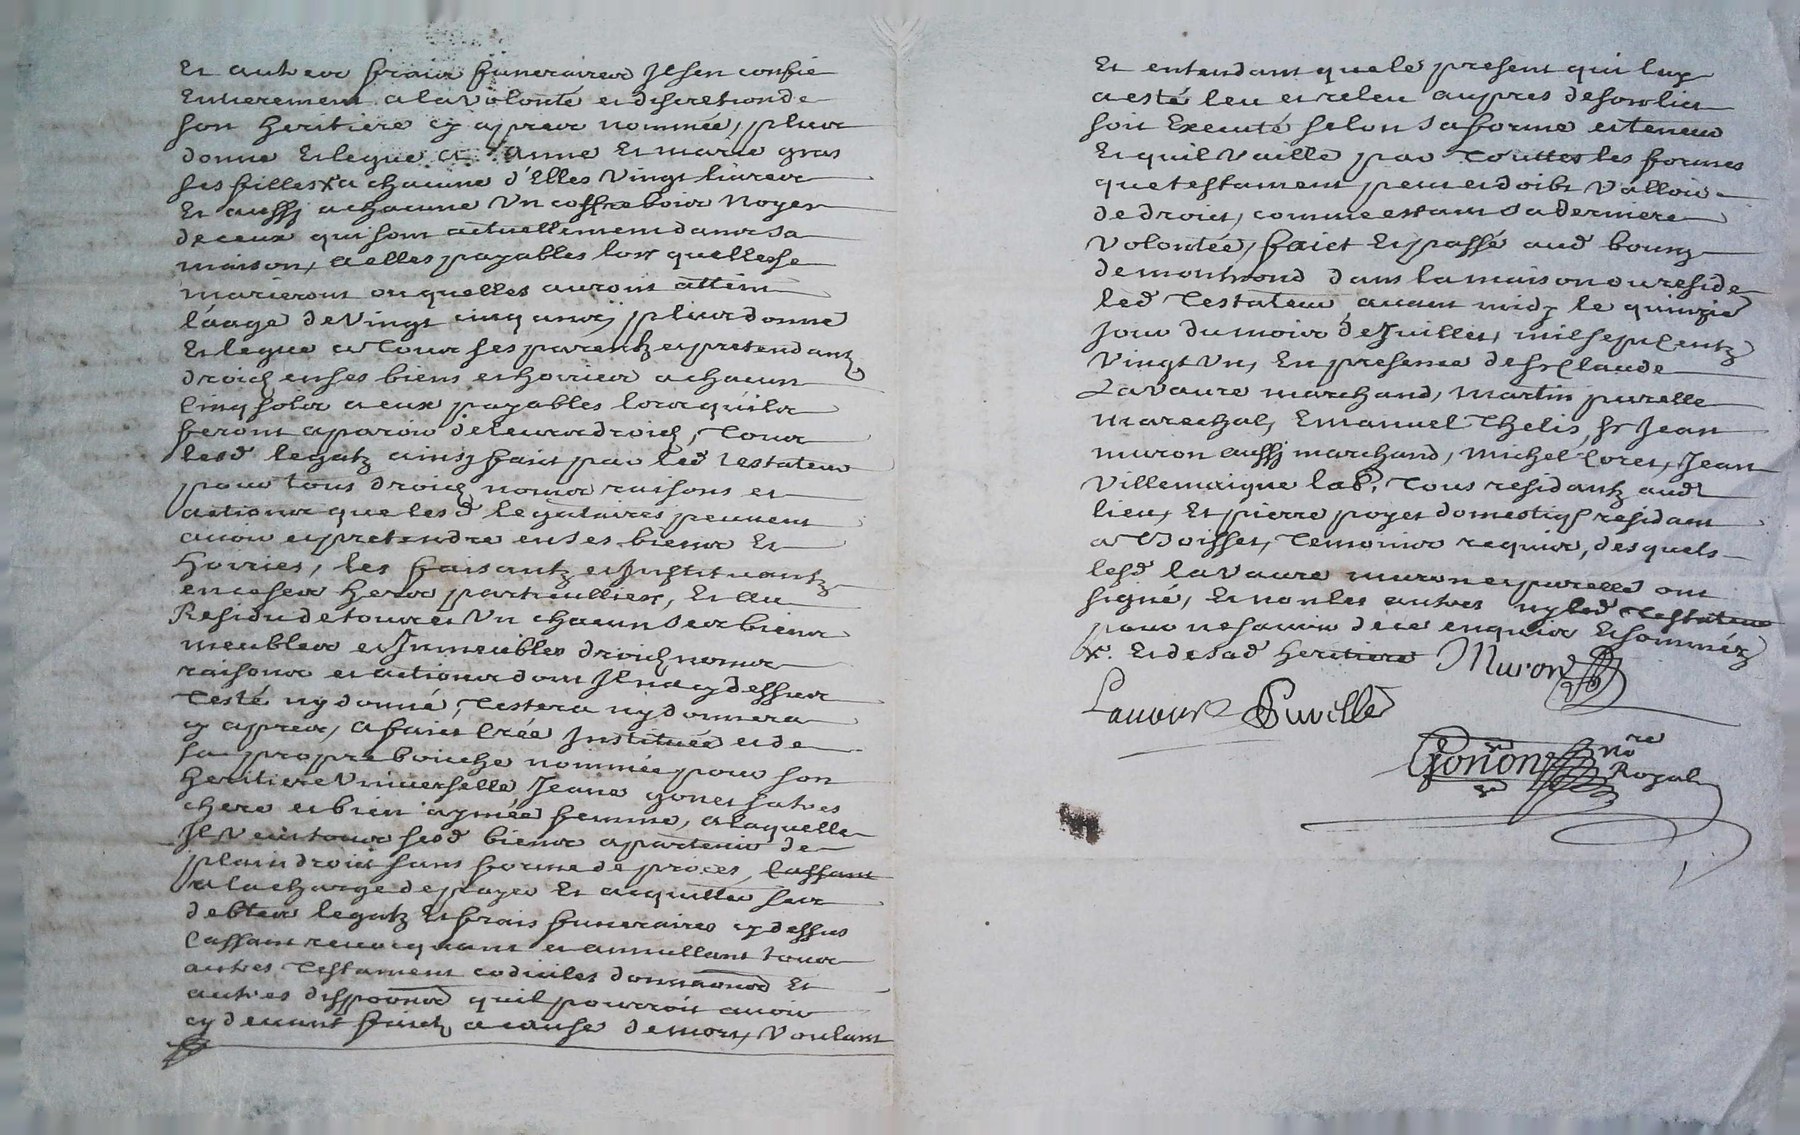 Et autres fraix funeraires Il s'en confie
Entierement a la volonté et discretion de
son heritiere cy apres nommée, plus
donne Et legue a Anne Et marie gras
ses filles x a chacune d'Elles vingt livres
Et aussy a chacune Un coffre bois Noyer
de ceux qui sont actuellement dans sa
maison, a elles payables lors quelles se
marieront ou quelles auront attein
l'aage de vingt cinq ans, plus donne
Et legue a tous ses parentz et pretendantz
droictz en ses biens et hoiries a chacun
Cinq sols a eux payables lors qu'ils
feront aparoir de leurs droictz, tous
lesd legatz ainsy faict par led testateur
pour tous droictz noms raisons et
actions que lesd legataires peuvent
avoir et pretendre en ses biens Et
hoiries, les faisantz et Instituantz
en ce ses hers particulliers, Et au
Residu de tous et Un chacun ses biens
meubles et Immeubles droictz noms
raisons et actions dont Il n'a cy dessus
testé ny donné, testera ny donnera
cy apres, a faict Créé Instituée et de
sa propre bouche nommée, pour son
heritiere Universelle Jeane gonet sa tres
chere et bien aymée femme, a laquelle
Il veut tous sesd biens apartenir de
plain droict sans forme de proces, Cassant
a la charge de payer Et acquitter ses
debtes legatz Et frais funeraires cy dessus
Cassant revocquant et annullant tous
autres testament codiciles donnaons Et
autres dispoons quil pourroit avoir
cy devant faictz a cause de mort, voulant
Et entendant que le present qui luy
a esté leu et releu aupres de son lict
soit Executé selon sa forme et teneur
Et quil vaille par touttes les formes
que testament peut et doibt valloir
de droict, comme estant sa derniere
volontée, faict Et passé aud bourg
de montrond dans la maison ou reside
led testateur, avant midy le quinzie
jour du mois de Juillet, mil sept Centz
vingt Un, En presence de sr Claude
Lavaure marchand, martin purelle
marechal, Emanuel Thelis, sr Jean
muron aussy marchand, michel Coret, Jean
villemaigne lab, tous residantz aud
lieu, Et pierre poyet domestiq residant
a Boisset, temoins requis, desquels
lesd lavaure muron et purelle ont
signé, Et non les autres ny led testateur
pour ne savoir de ce enquis Et sommés
x. Et de sad heritiere Muron
Lavaure Puvelle
Gonon nore
Royal